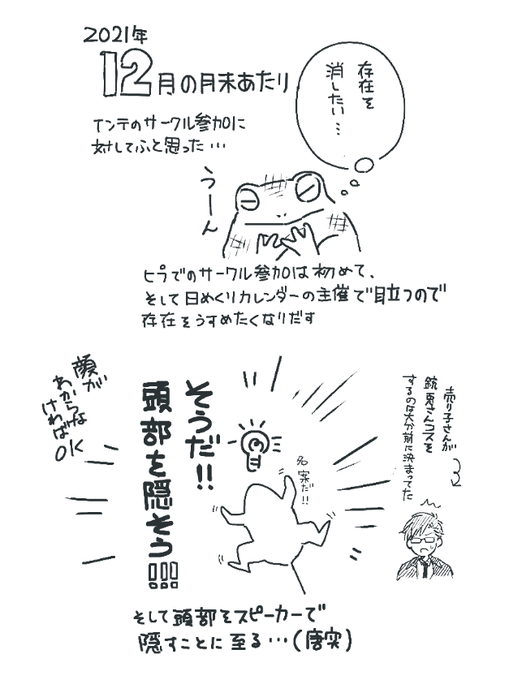 2021年
12月の月末あたり
インテのサークル参加に
対してふと思った…
存在を
消したい…
うーん
ヒプでのサークル参加は初めて、
そして日めくりカレンダーの主催で目立つので
存在をうすめたくなりだす
そうだ!!
頭部を隠そう!!!
名案だ!!
顔が
わからな
ければ
OK
売り子さんが
銃兎さんコスを
するのは大分前に決まってた
そして頭部をスピーカーで
隠すことに至る…(唐突)